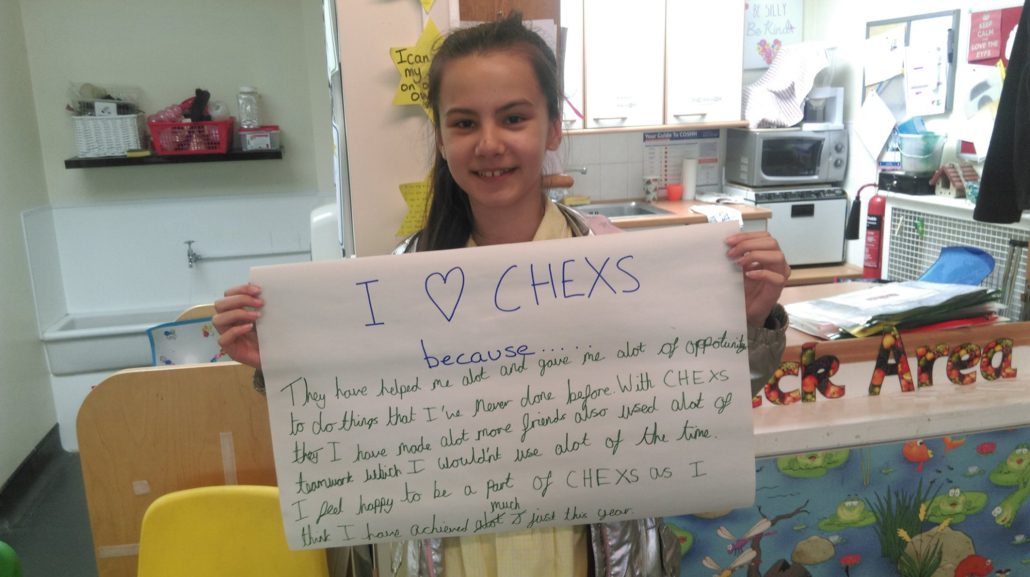 I ♡ CHEXS
because.....
They have helped me alot and gave me alot of oppotunity
to do things that I've never done before. With CHEXS
they I have made alot more friends also used alot of
teamwork which I wouldn't use alot of the time.
I feel happy to be a part of CHEXS as I
much
think I have achieved alot just this year.
I can
my
on
BE SILLY
Be Kind
KEEP
CALM
AND
LOVE THE
EYFS
Your Guide To COSHH
ck Area